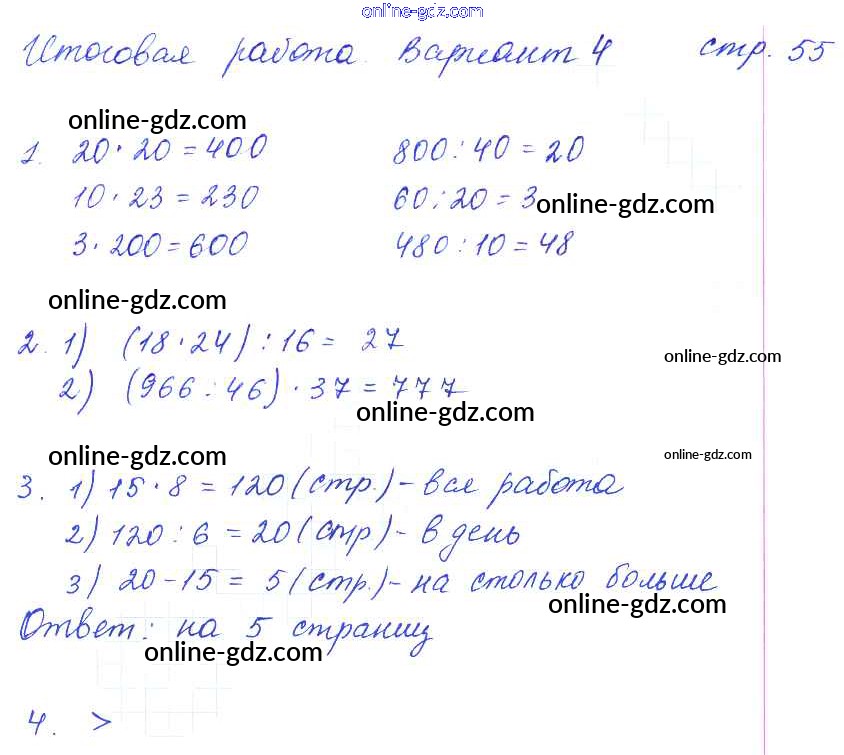 online-gdz.com
Итоговая работа. Вариант 4 стр. 55
online-gdz.com
1. 20 · 20 = 400 800 : 40 = 20
10 · 23 = 230 60 : 20 = 3 online-gdz.com
3 · 200 = 600 480 : 10 = 48
online-gdz.com
2. 1) (18 · 24) : 16 = 27
online-gdz.com
2) (966 : 46) · 37 = 777
online-gdz.com
online-gdz.com online-gdz.com
3. 1) 15 · 8 = 120 (стр.) - вся работа
2) 120 : 6 = 20 (стр) - в день
3) 20 - 15 = 5 (стр.) - на столько больше
online-gdz.com
Ответ: на 5 страниц
online-gdz.com
4. >